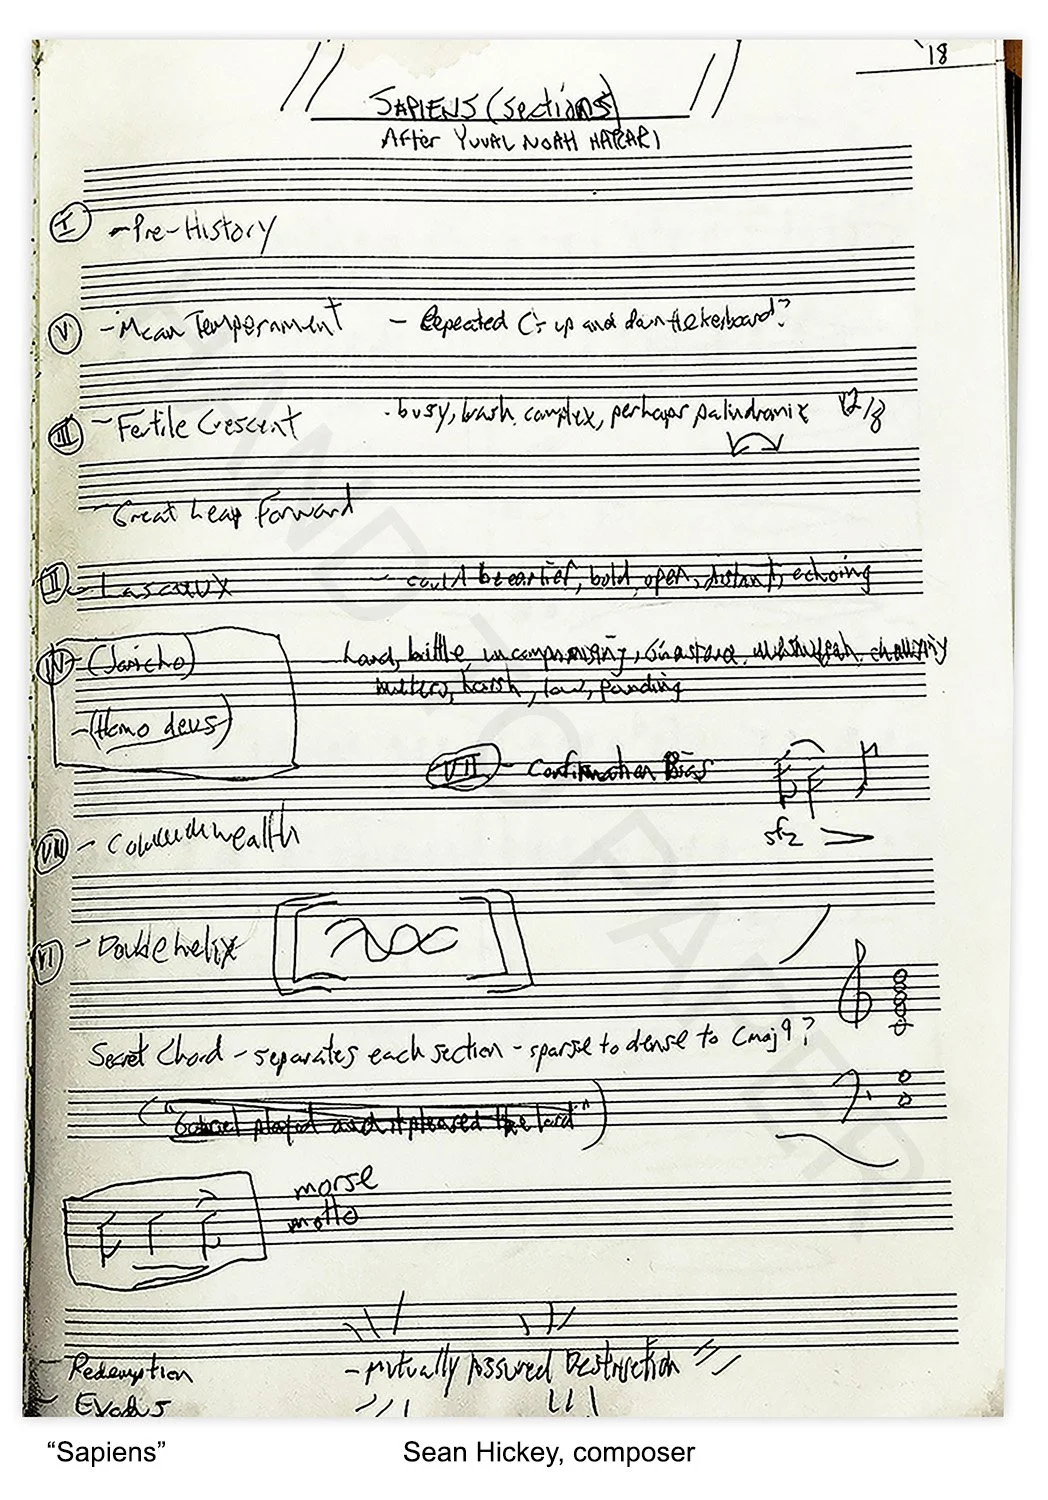 '18
SAPIENS (sections)
After YUVAL NOAH HARARI
I - Pre-History
V - Mean Temperament - Repeated C's up and down the keyboard?
III - Fertile Crescent - busy, brash, complex, perhaps palindromic 12/8
- Great Leap Forward
II - Lascaux - could be earlier, bold, open, distant, echoing
IV - (Jericho) hard, brittle, uncompromising,
meters, harsh, low, pounding
- (Homo deus)
VII - Confirmation Bias
sfz
VIII - Commonwealth
VI - Double helix
Secret Chord - separates each section - sparse to dense to Cmaj9?
("Gabriel played and it pleased the lord")
morse
motto
- Redemption - Mutually Assured Destruction
- Exodus
HAND TO PAPER
“Sapiens” Sean Hickey, composer